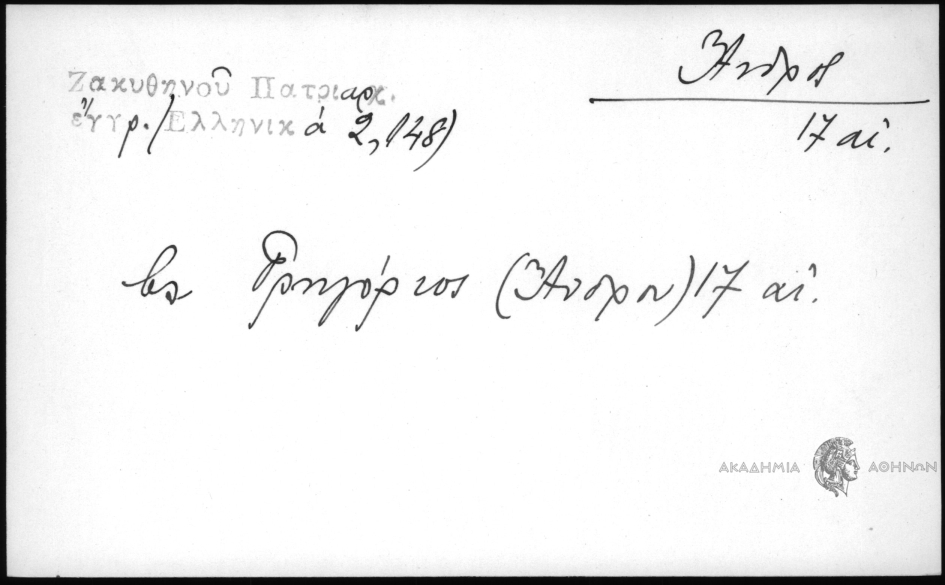 Ἄνδρος
Ζακυθηνοῦ Πατριαρχ.
ἔγγρ./Ἑλληνικά 2, 148)
17 αἰ.
βλ Γρηγόριος (Ἄνδρου) 17 αἰ.
ΑΚΑΔΗΜΙΑ ΑΘΗΝΩΝ